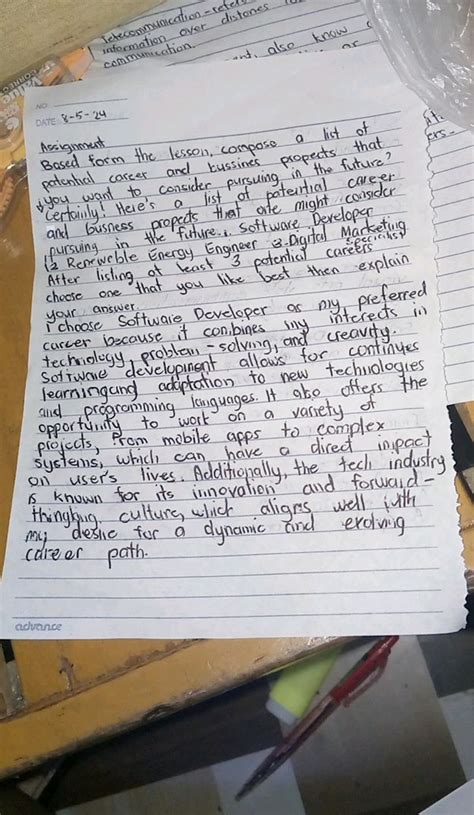 Telecommunication - refers
information over distances
communication.
also know
or
NO.
DATE: 8-5-'24
Assignment
Based form the lesson, compose a list of
potential career and bussines propects that
you want to consider pursuing in the future?
Certainly! Here's a list of potential career
and business propects that one might consider
pursuing in the future. 1. Software Developer
2 Renewerble Energy Engineer 3. Digital Marketing
Specialist
After listing at least 3 potential careers
choose one that you like best then explain
your answer.
I choose Software Developer as my preferred
career because it conbines my interects in
technology, problem-solving, and creavity.
Software development allows for continues
learningand adaptation to new technologies
and programming languages. It also offers the
opportunity to work on a variety of
projects, from mobile apps to complex
systems, which can have a direct inpact
on user's lives. Additionally, the tech industry
is known for its innovation and forward-
thingking culture, which aligns well with
my desire for a dynamic and evolving
career path.
advance